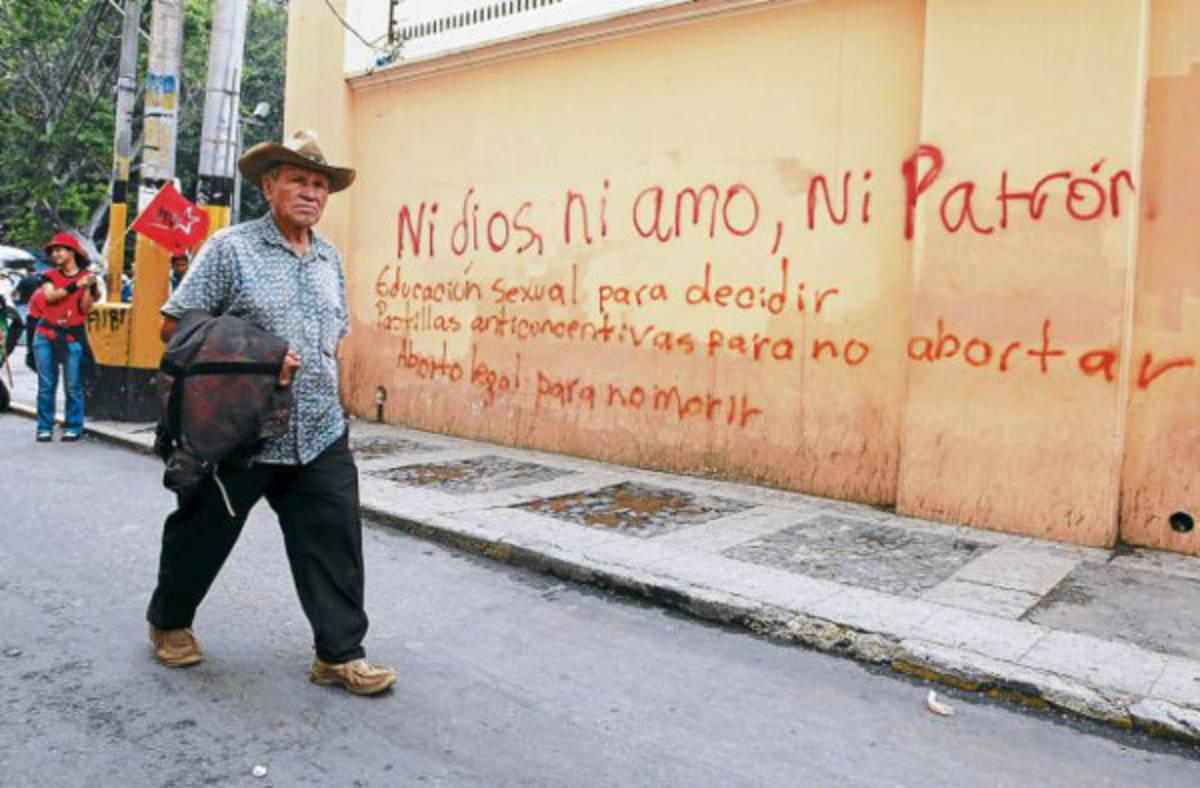 Ni dios, ni amo, Ni Patrón
Educación sexual para decidir
Pastillas anticoncentivas para no abortar
Aborto legal para no morir